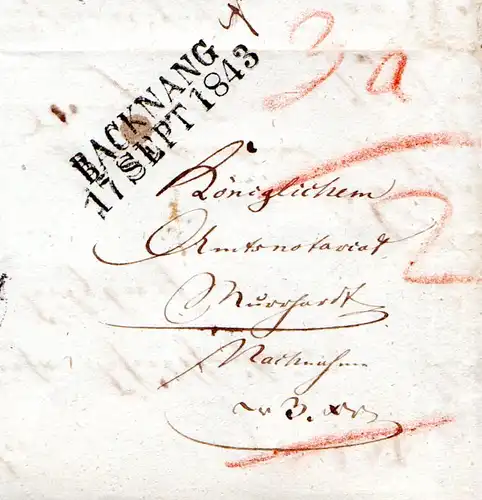 BACKNANG
17 SEPT 1843
3 a
Königlichem
Amtsnotariat
2
Murrhardt
Nachnahme
3. xr